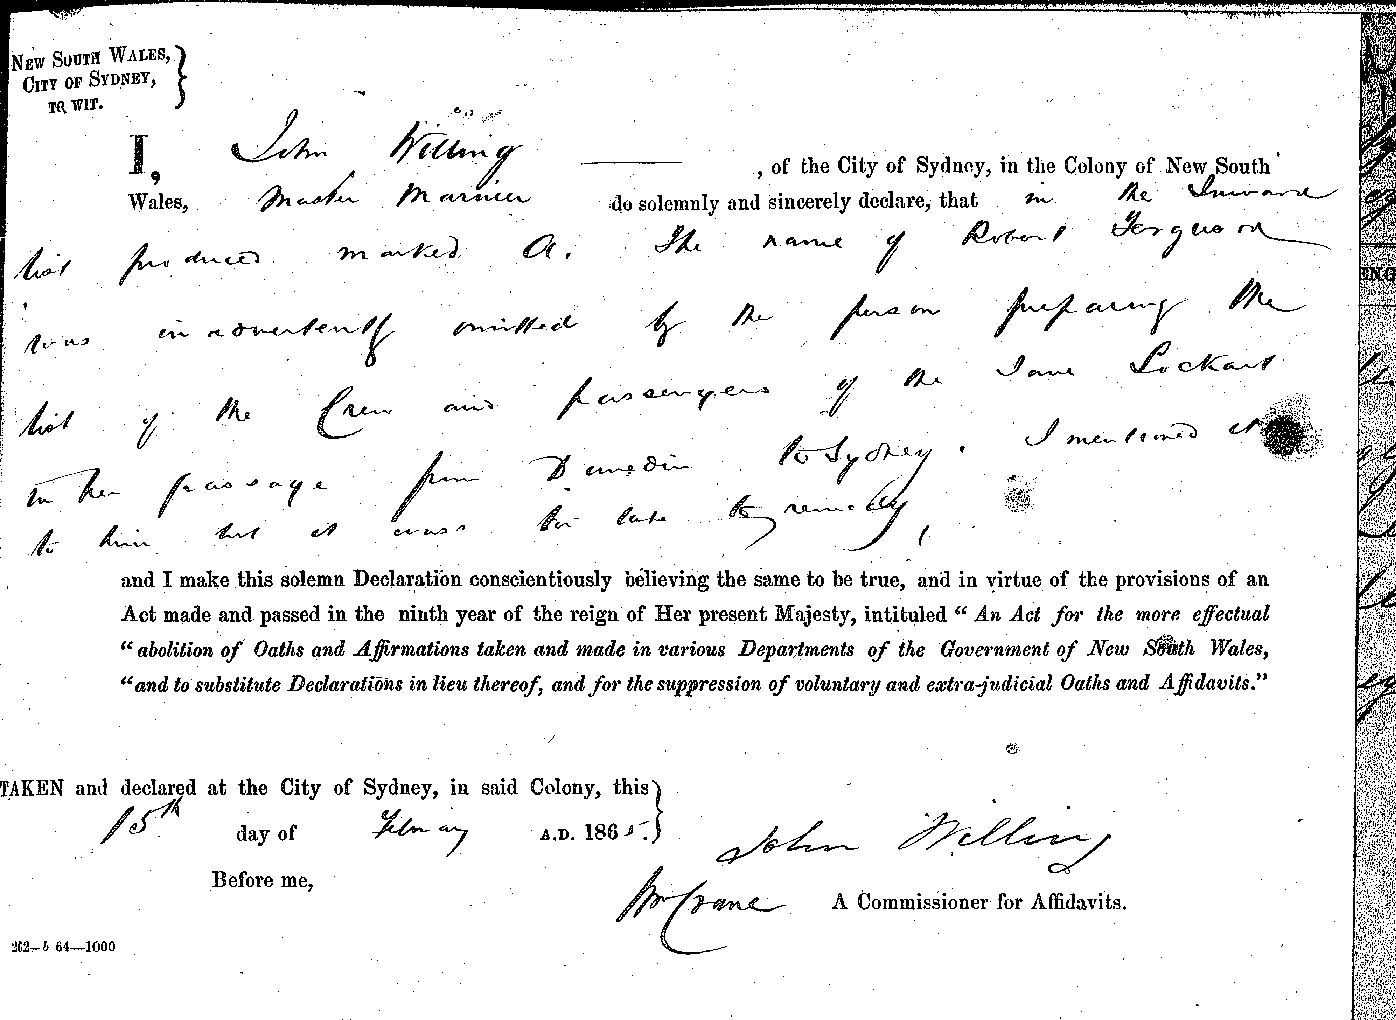 NEW SOUTH WALES,
CITY OF SYDNEY,
TO WIT.
I, John Willing , of the City of Sydney, in the Colony of New South
Wales, Master Mariner do solemnly and sincerely declare, that in the Inward
list produced marked A. The name of Robert Ferguson
was inadvertently omitted by the person preparing the
list of the Crew and passengers of the Jane Lockart
on her passage from Dunedin to Sydney. I mentioned it
to him but it was too late to remedy,
and I make this solemn Declaration conscientiously believing the same to be true, and in virtue of the provisions of an
Act made and passed in the ninth year of the reign of Her present Majesty, intituled “ An Act for the more effectual
“ abolition of Oaths and Affirmations taken and made in various Departments of the Government of New South Wales,
“ and to substitute Declarations in lieu thereof, and for the suppression of voluntary and extra-judicial Oaths and Affidavits.”
TAKEN and declared at the City of Sydney, in said Colony, this
15th day of February A.D. 1865.
John Willing
Before me,
Wm Crane A Commissioner for Affidavits.
262—b 64—1000